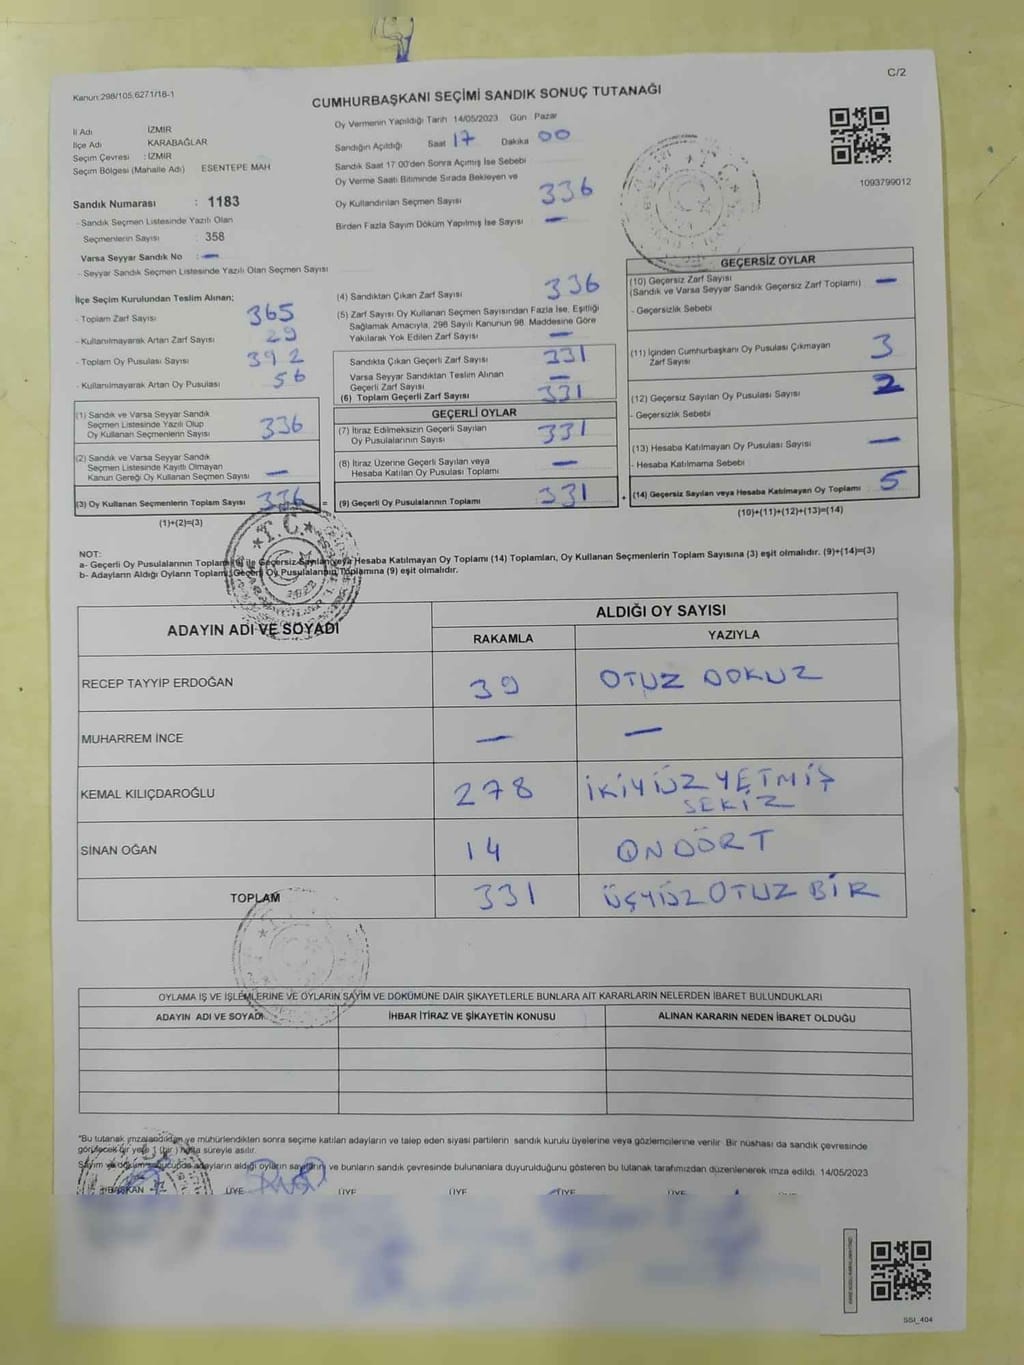 C/2
Kanun:298/105,6271/18-1
CUMHURBAŞKANI SEÇİMİ SANDIK SONUÇ TUTANAĞI
İl Adı İZMİR
İlçe Adı KARABAĞLAR
Seçim Çevresi : İZMİR
Seçim Bölgesi (Mahalle Adı) ESENTEPE MAH
Sandık Numarası : 1183
- Sandık Seçmen Listesinde Yazılı Olan
Seçmenlerin Sayısı : 358
Varsa Seyyar Sandık No : —
- Seyyar Sandık Seçmen Listesinde Yazılı Olan Seçmen Sayısı
Oy Vermenin Yapıldığı Tarih 14/05/2023 Gün Pazar
Sandığın Açıldığı Saat 17 Dakika 00
Sandık Saat 17:00'den Sonra Açımış İse Sebebi
Oy Verme Saati Bitiminde Sırada Bekleyen ve
Oy Kullandırılan Seçmen Sayısı 336
Birden Fazla Sayım Döküm Yapılmış İse Sayısı —
1093799012
İlçe Seçim Kurulundan Teslim Alınan;
- Toplam Zarf Sayısı 365
- Kullanılmayarak Artan Zarf Sayısı 29
- Toplam Oy Pusulası Sayısı 392
- Kullanılmayarak Artan Oy Pusulası 56
(1) Sandık ve Varsa Seyyar Sandık
Seçmen Listesinde Yazılı Olup
Oy Kullanan Seçmenlerin Sayısı 336
(2) Sandık ve Varsa Seyyar Sandık
Seçmen Listesinde Kayıtlı Olmayan
Kanun Gereği Oy Kullanan Seçmen Sayısı —
(3) Oy Kullanan Seçmenlerin Toplam Sayısı 336 =
(1)+(2)=(3)
(4) Sandıktan Çıkan Zarf Sayısı 336
(5) Zarf Sayısı Oy Kullanan Seçmen Sayısından Fazla İse, Eşitliği
Sağlamak Amacıyla, 298 Sayılı Kanunun 98. Maddesine Göre
Yakılarak Yok Edilen Zarf Sayısı —
Sandıkta Çıkan Geçerli Zarf Sayısı 331
Varsa Seyyar Sandıktan Teslim Alınan
Geçerli Zarf Sayısı —
(6) Toplam Geçerli Zarf Sayısı 331
GEÇERLİ OYLAR
(7) İtiraz Edilmeksizin Geçerli Sayılan
Oy Pusulalarının Sayısı 331
(8) İtiraz Üzerine Geçerli Sayılan veya
Hesaba Katılan Oy Pusulası Toplamı —
(9) Geçerli Oy Pusulalarının Toplamı 331 +
GEÇERSİZ OYLAR
(10) Geçersiz Zarf Sayısı
(Sandık ve Varsa Seyyar Sandık Geçersiz Zarf Toplamı) —
- Geçersizlik Sebebi
(11) İçinden Cumhurbaşkanı Oy Pusulası Çıkmayan
Zarf Sayısı 3
(12) Geçersiz Sayılan Oy Pusulası Sayısı 2
- Geçersizlik Sebebi
(13) Hesaba Katılmayan Oy Pusulası Sayısı —
- Hesaba Katılmama Sebebi
(14) Geçersiz Sayılan veya Hesaba Katılmayan Oy Toplamı 5
(10)+(11)+(12)+(13)=(14)
NOT:
a- Geçerli Oy Pusulalarının Toplamı (9) ile Geçersiz Sayılan veya Hesaba Katılmayan Oy Toplamı (14) Toplamları, Oy Kullanan Seçmenlerin Toplam Sayısına (3) eşit olmalıdır. (9)+(14)=(3)
b- Adayların Aldığı Oyların Toplamı, Geçerli Oy Pusulalarının Toplamına (9) eşit olmalıdır.
ADAYIN ADI VE SOYADI ALDIĞI OY SAYISI
RAKAMLA YAZIYLA
RECEP TAYYİP ERDOĞAN 39 OTUZ DOKUZ
MUHARREM İNCE — —
KEMAL KILIÇDAROĞLU 278 İKİYÜZ YETMİŞ
SEKİZ
SİNAN OĞAN 14 ONDÖRT
TOPLAM 331 ÜÇYÜZ OTUZ BİR
OYLAMA İŞ VE İŞLEMLERİNE VE OYLARIN SAYIM VE DÖKÜMÜNE DAİR ŞİKAYETLERLE BUNLARA AİT KARARLARIN NELERDEN İBARET BULUNDUKLARI
ADAYIN ADI VE SOYADI İHBAR İTİRAZ VE ŞİKAYETİN KONUSU ALINAN KARARIN NEDEN İBARET OLDUĞU
"Bu tutanak imzalandıktan ve mühürlendikten sonra seçime katılan adayların ve talep eden siyasi partilerin sandık kurulu üyelerine veya gözlemcilerine verilir. Bir nüshası da sandık çevresinde
görülecek bir yere 1 (bir) hafta süreyle asılır.
Sayım ve döküm sonucunda adayların aldığı oyların sayıların ve bunların sandık çevresinde bulunanlara duyurulduğunu gösteren bu tutanak tarafımızdan düzenlenerek imza edildi. 14/05/2023
BAŞKAN ÜYE ÜYE ÜYE ÜYE ÜYE ÜYE
SSI_404